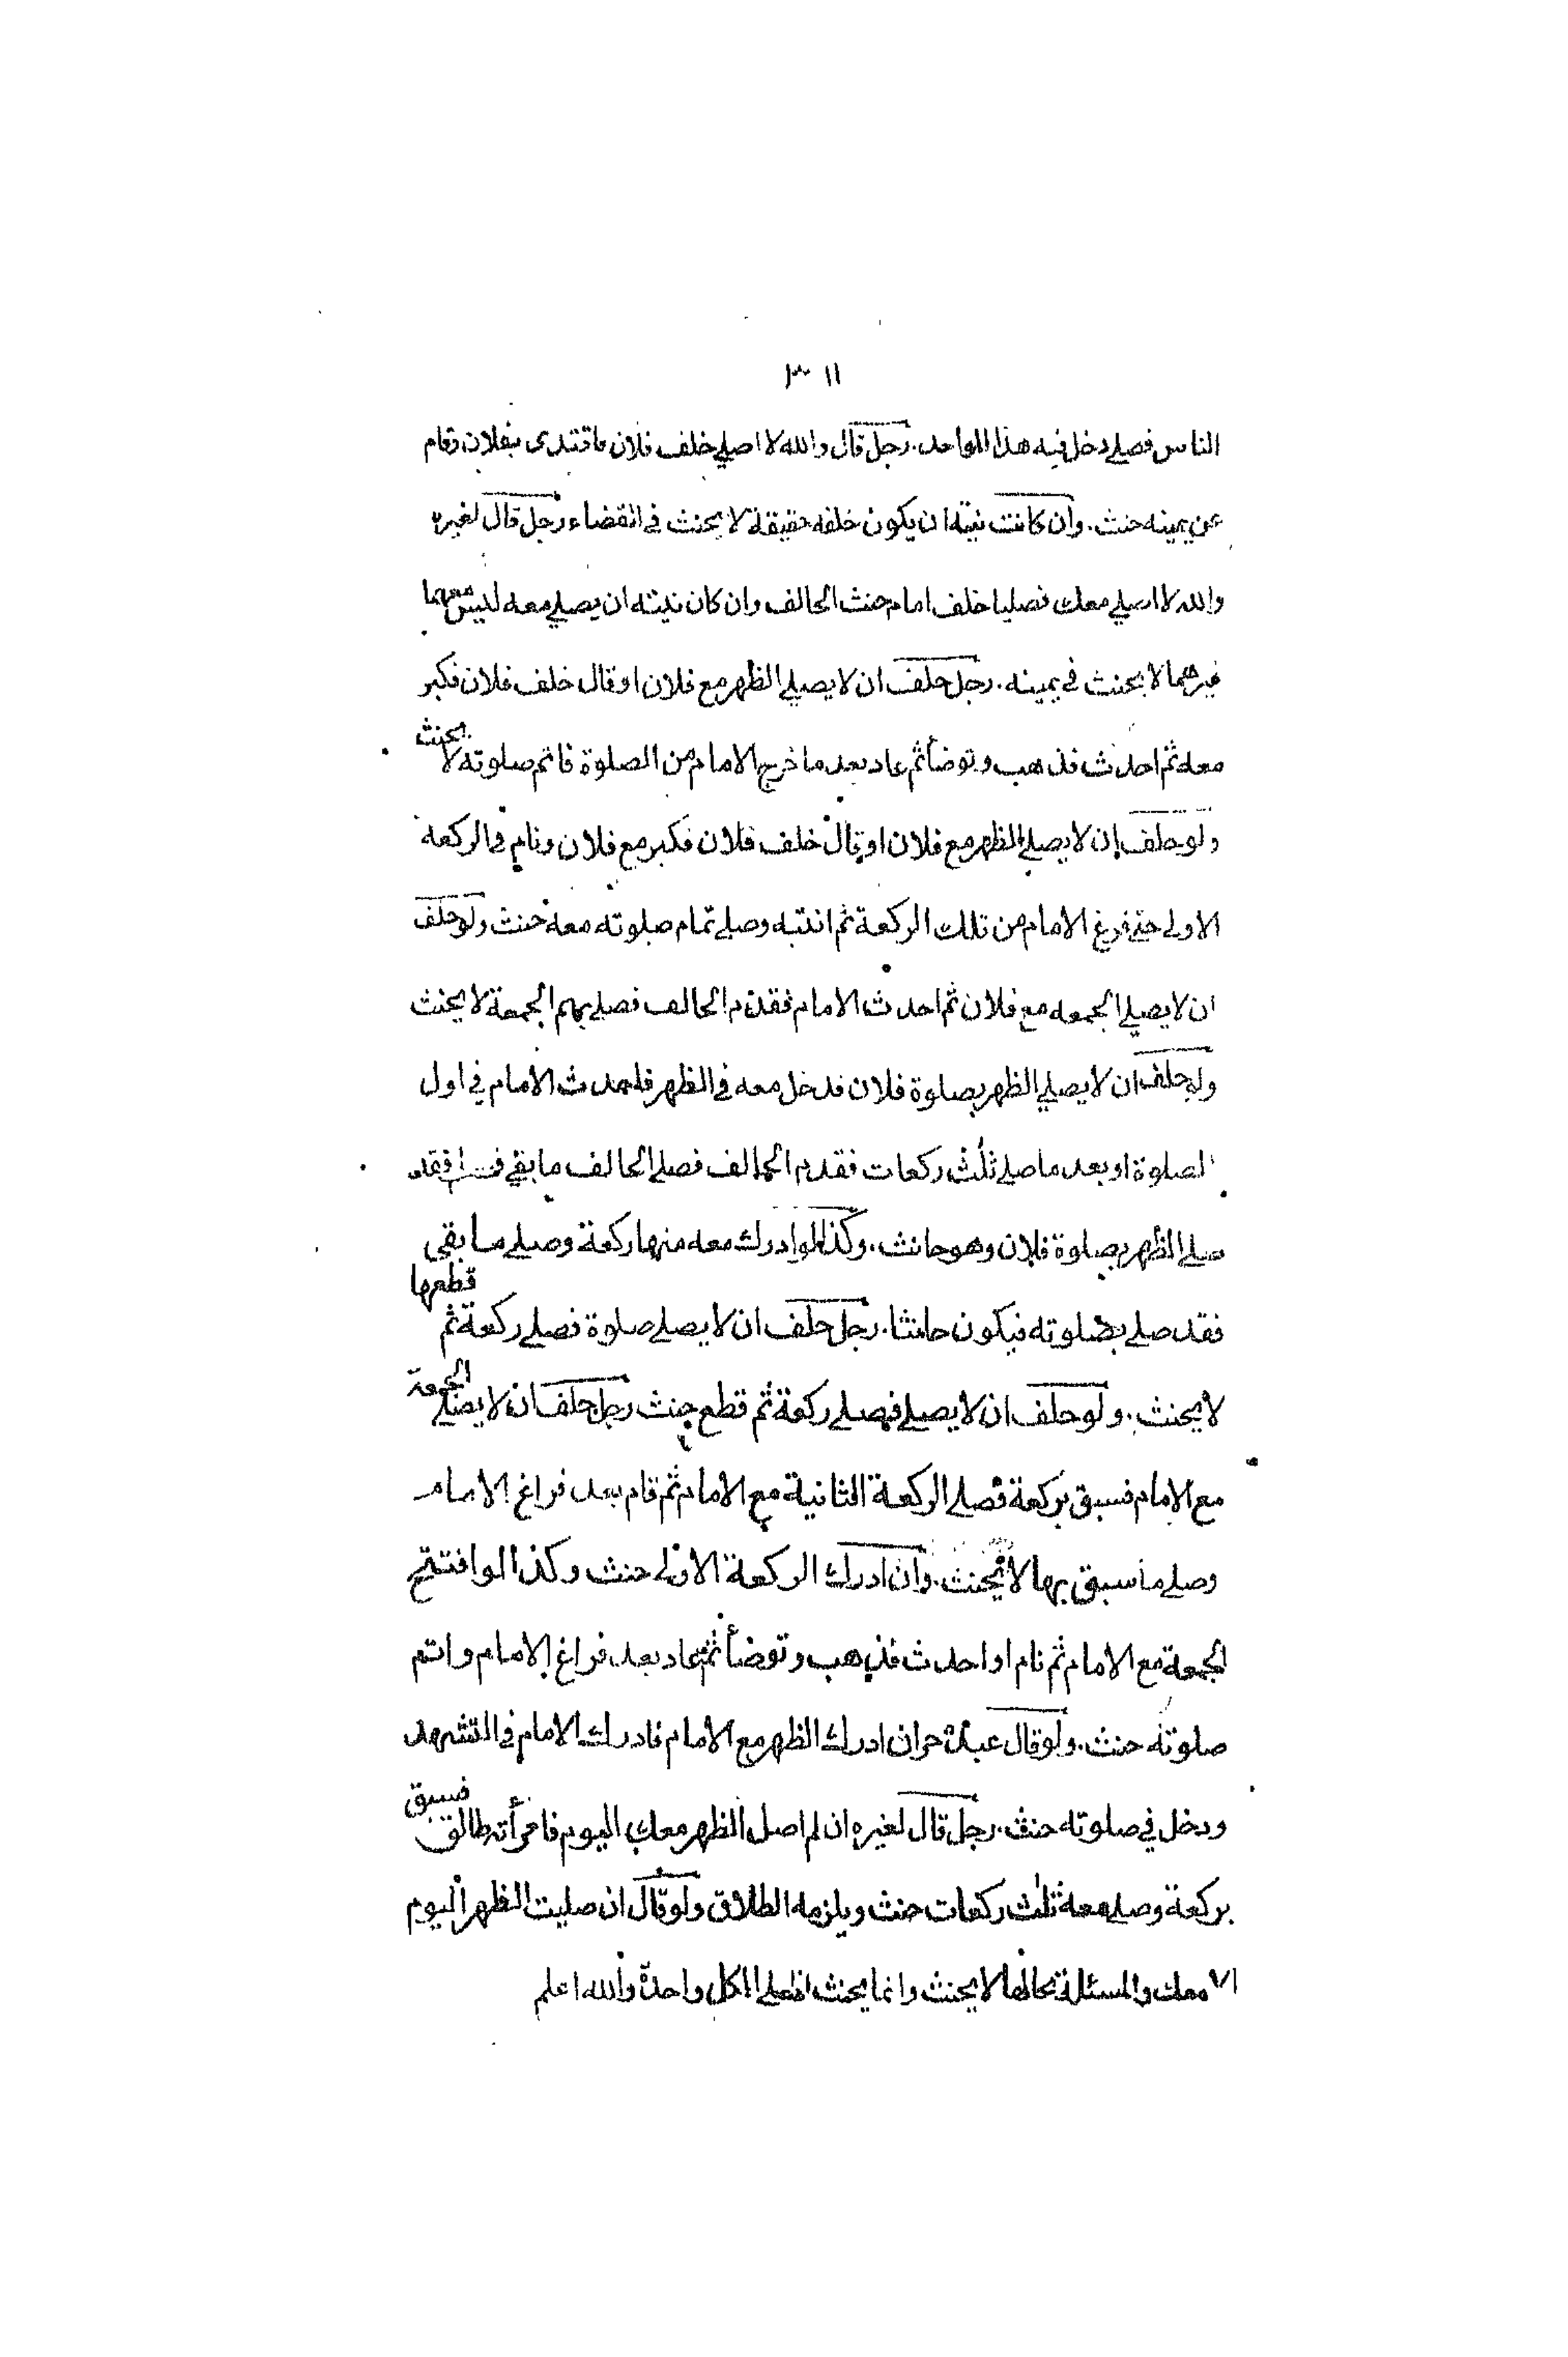 ٣١١
الناس فصلى دخل فيه هذا الواحد. رجل قال والله لا اصلي خلف فلان فاقتدى بفلان وقام
عن يمينه حنث. وان كانت نيته ان يكون خلفه حقيقة لا يحنث في القضاء رجل قال لغيره
والله لا اصلي معك فصليا خلف امام حنث الحالف وان كان نيته ان يصلي معه ليس معهما
غيرهما لا يحنث في يمينه. رجل حلف ان لا يصلي الظهر مع فلان او قال خلف فلان فكبر
معه ثم احدث فذهب وتوضأ ثم عاد بعد ما خرج الامام من الصلوة فاتم صلوته لا يحنث
ولو حلف ان لا يصلي الظهر مع فلان او قال خلف فلان فكبر مع فلان ونام في الركعة
الاولى حتى فرغ الامام من تلك الركعة ثم انتبه وصلى تمام صلوته معه حنث ولو حلف
ان لا يصلي الجمعه مع فلان ثم احدث الامام فقدم الحالف فصلى بهم الجمعة لا يحنث
ولو حلف ان لا يصلي الظهر بصلوة فلان فدخل معه في الظهر فاحدث الامام في اول
الصلوة او بعد ما صلى ثلث ركعات فقدم الحالف فصلى الحالف ما بقي فقد
صلى الظهر بصلوة فلان وهو حانث. وكذا لو ادرك معه منها ركعة وصلى ما بقي
فقد صلى بصلوته فيكون حانثا. رجل حلف ان لا يصلي صلوة فصلى ركعة ثم قطعها
لا يحنث. ولو حلف ان لا يصلي فصلى ركعة ثم قطع حنث رجل حلف ان لا يصلي الجمعة
مع الامام فسبق بركعة فصلى الركعة الثانية مع الامام ثم قام بعد فراغ الامام
وصلى ما سبق بها لا يحنث. وان ادرك الركعة الاولى حنث وكذا لو افتتح
الجمعة مع الامام ثم نام او احدث فذهب وتوضأ ثم عاد بعد فراغ الامام واتم
صلوته حنث. ولو قال عبده حر ان ادرك الظهر مع الامام فادرك الامام في التشهد
ودخل في صلوته حنث. رجل قال لغيره ان لم اصل الظهر معك اليوم فامرأته طالق فسبق
بركعة وصلى معه ثلث ركعات حنث ويلزمه الطلاق ولو قال ان صليت الظهر اليوم
الا معك والمسئلة بحالها لا يحنث وانما يحنث الكل واحدة والله اعلم